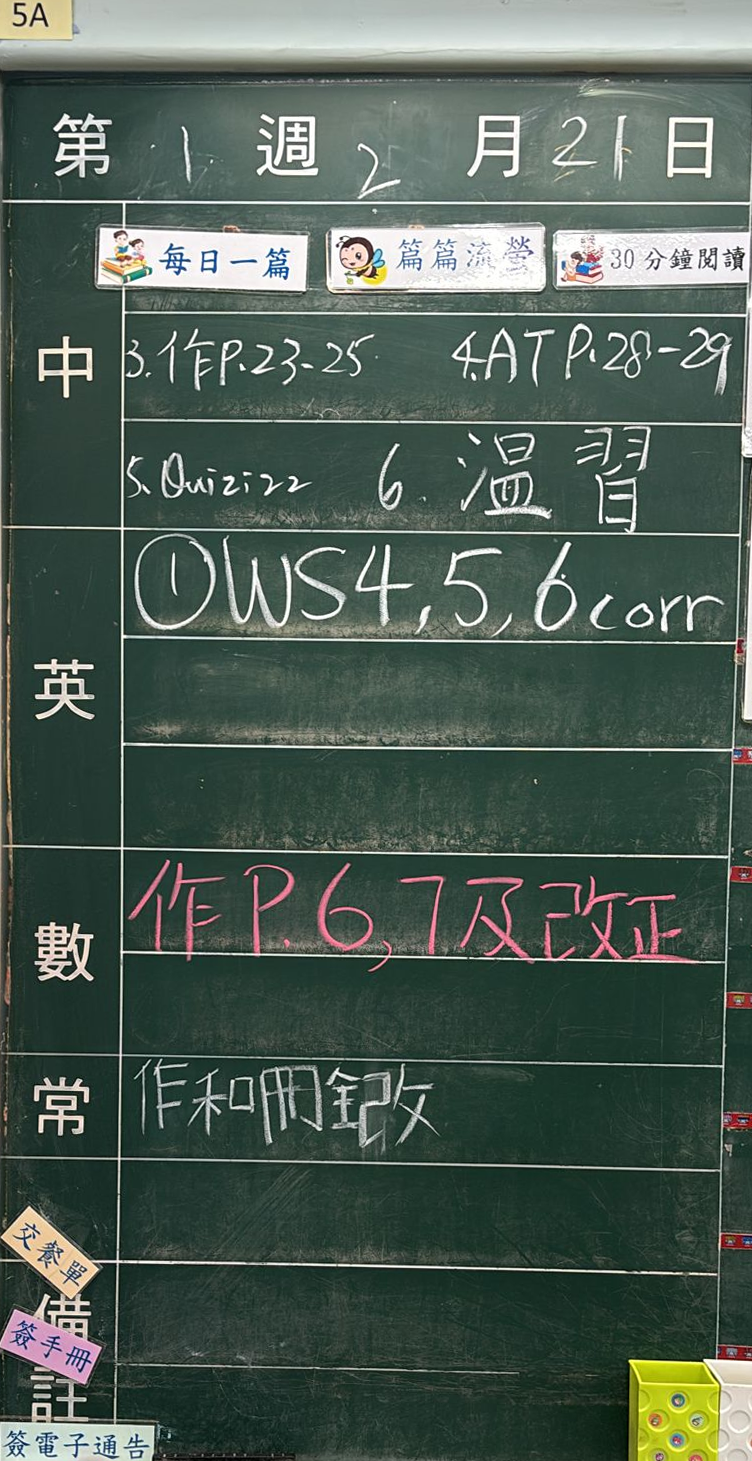 5A
第 1 週 2 月 21 日
每日一篇 篇篇流螢 30分鐘閱讀
中
3.作P.23-25 4.AT P.28-29
5.Quizizz 6.溫習
英
①WS4,5,6corr
數
作P.6,7及改正
常
作和冊改
交餐單
備註
簽手冊
簽電子通告